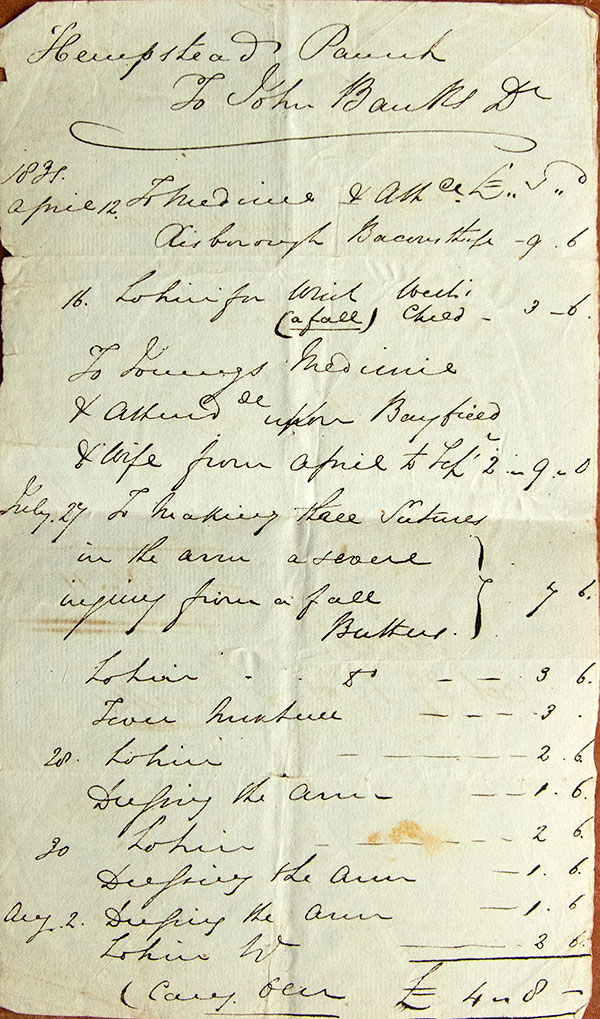 Hempstead Parish
To John Banks Dr
1831.
April 12. To Medicine & Attce. £ ,, S ,, D
Baconsthorpe - 9 . 6
16. Lotion for Wrist Child -
(a fall) 3 - 6.
To Journeys Medicine
& Attendce upon Bayfield
& Wife from April to Sepr 2 ,, 9 ,, 0
July. 27 To making three Sutures
in the arm a severe
injury from a fall 7 6.
Butters.
Lotion - - Do - - 3 6.
Fever Mixture - - - 3 .
28. Lotion - - - 2 . 6.
Dressing the Arm - - 1 . 6.
30 Lotion - - - 2 6.
Dressing the Arm - 1 . 6.
Aug. 2. Dressing the Arm - 1 . 6
Lotion 6.
(Carry. Over £ 4 ,, 8 -